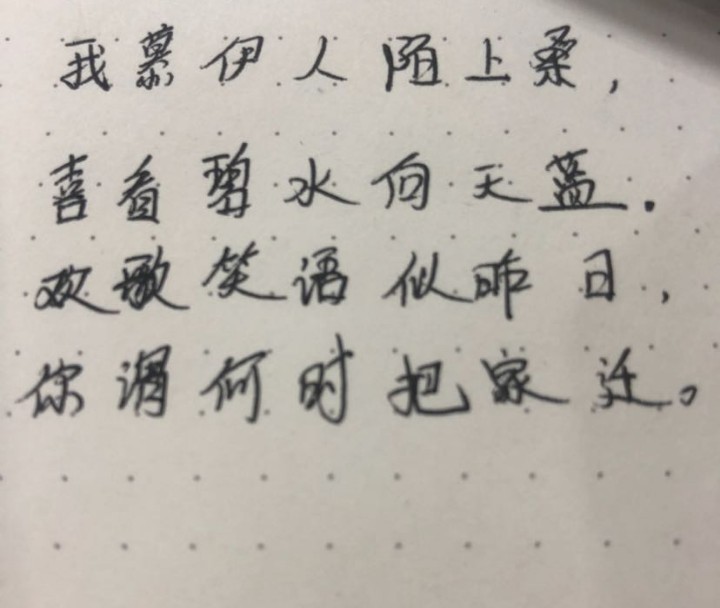 我慕伊人陌上桑,
喜看碧水向天蓝.
欢歌笑语似昨日,
你谓何时把家迁。